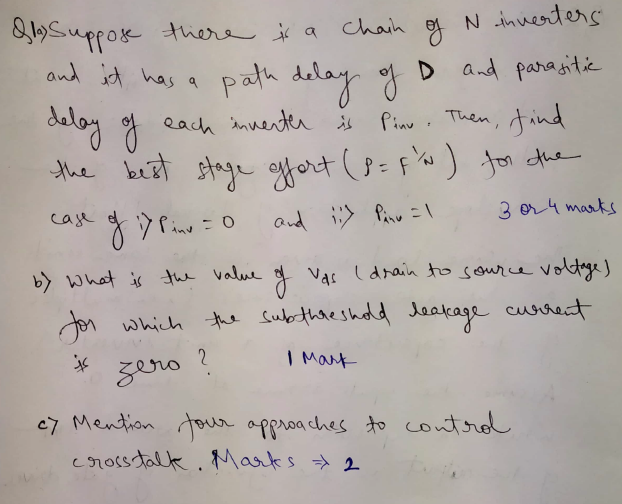 Q1a) Suppose there is a chain of N inverters
and it has a path delay of D and parasitic
delay of each inverter is Pinv. Then, find
the best stage effort (ρ = F^1/N) for the
case of i) Pinv = 0 and ii) Pinv = 1 3 or 4 marks
b) What is the value of Vds (drain to source voltage)
for which the subthreshold leakage current
is zero? 1 Mark
c) Mention four approaches to control
crosstalk. Marks ⇒ 2